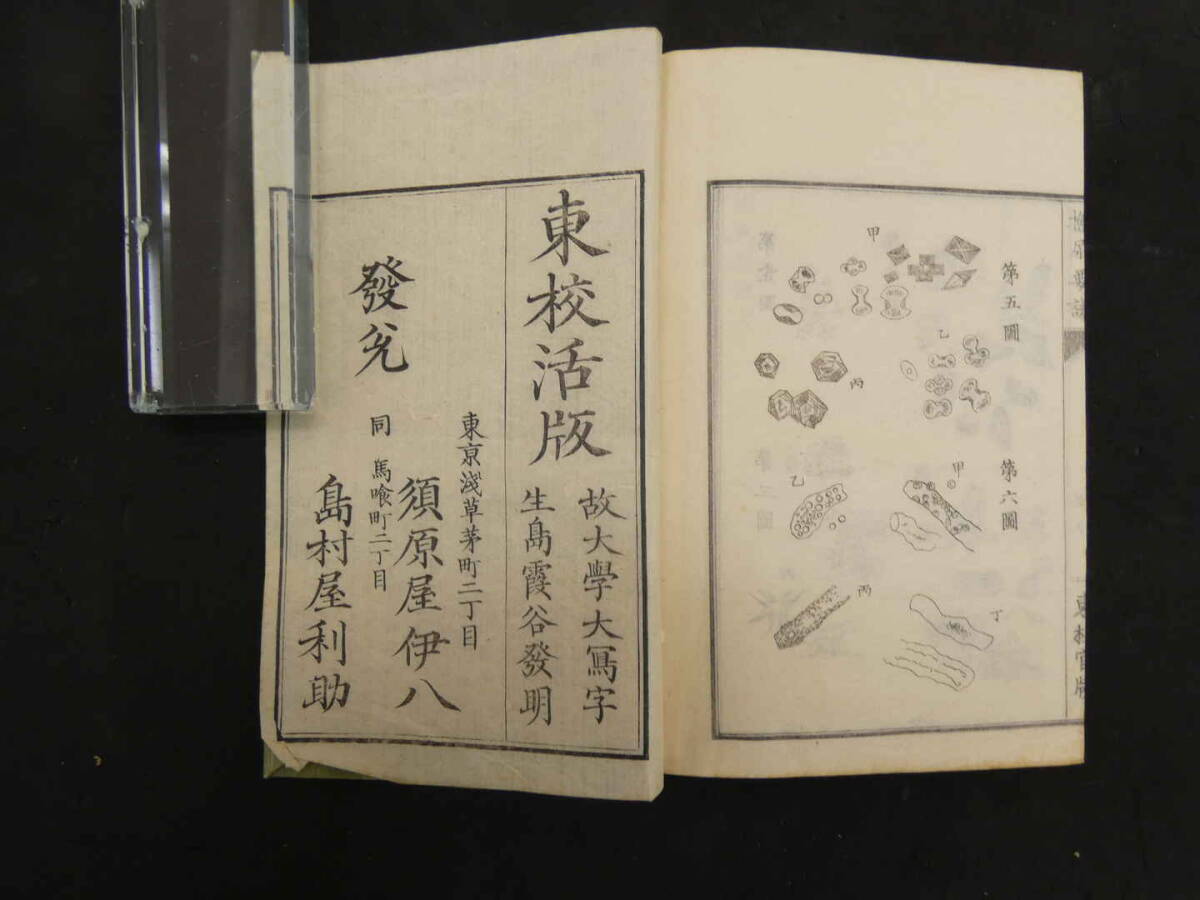 第五圖
甲
乙
丙
第六圖
甲
乙
丙
丁
東校官版
東校活版
故大學大寫字
生島霞谷發明
發兌
東京淺草茅町二丁目
須原屋伊八
同 馬喰町二丁目
島村屋利助